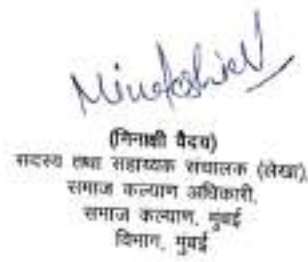 Minakshi V
(मिनाक्षी वैदय)
सदस्य तथा सहाय्यक संचालक (लेखा),
समाज कल्याण अधिकारी,
समाज कल्याण, मुंबई
विभाग, मुंबई